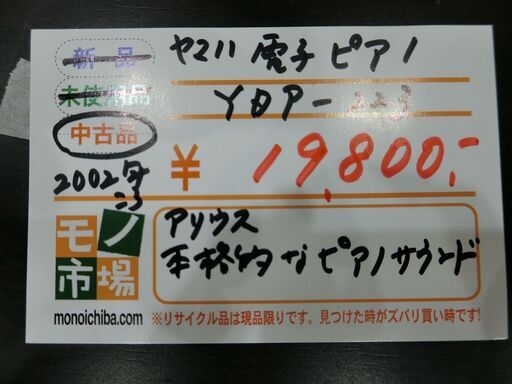 新品
ヤマハ 電子ピアノ
未使用品
YDP-223
中古品
2002年
¥ 19,800,-
モノ市場
アリウス
本格的なピアノサウンド
monoichiba.com
※リサイクル品は現品限りです。見つけた時がズバリ買い時です!